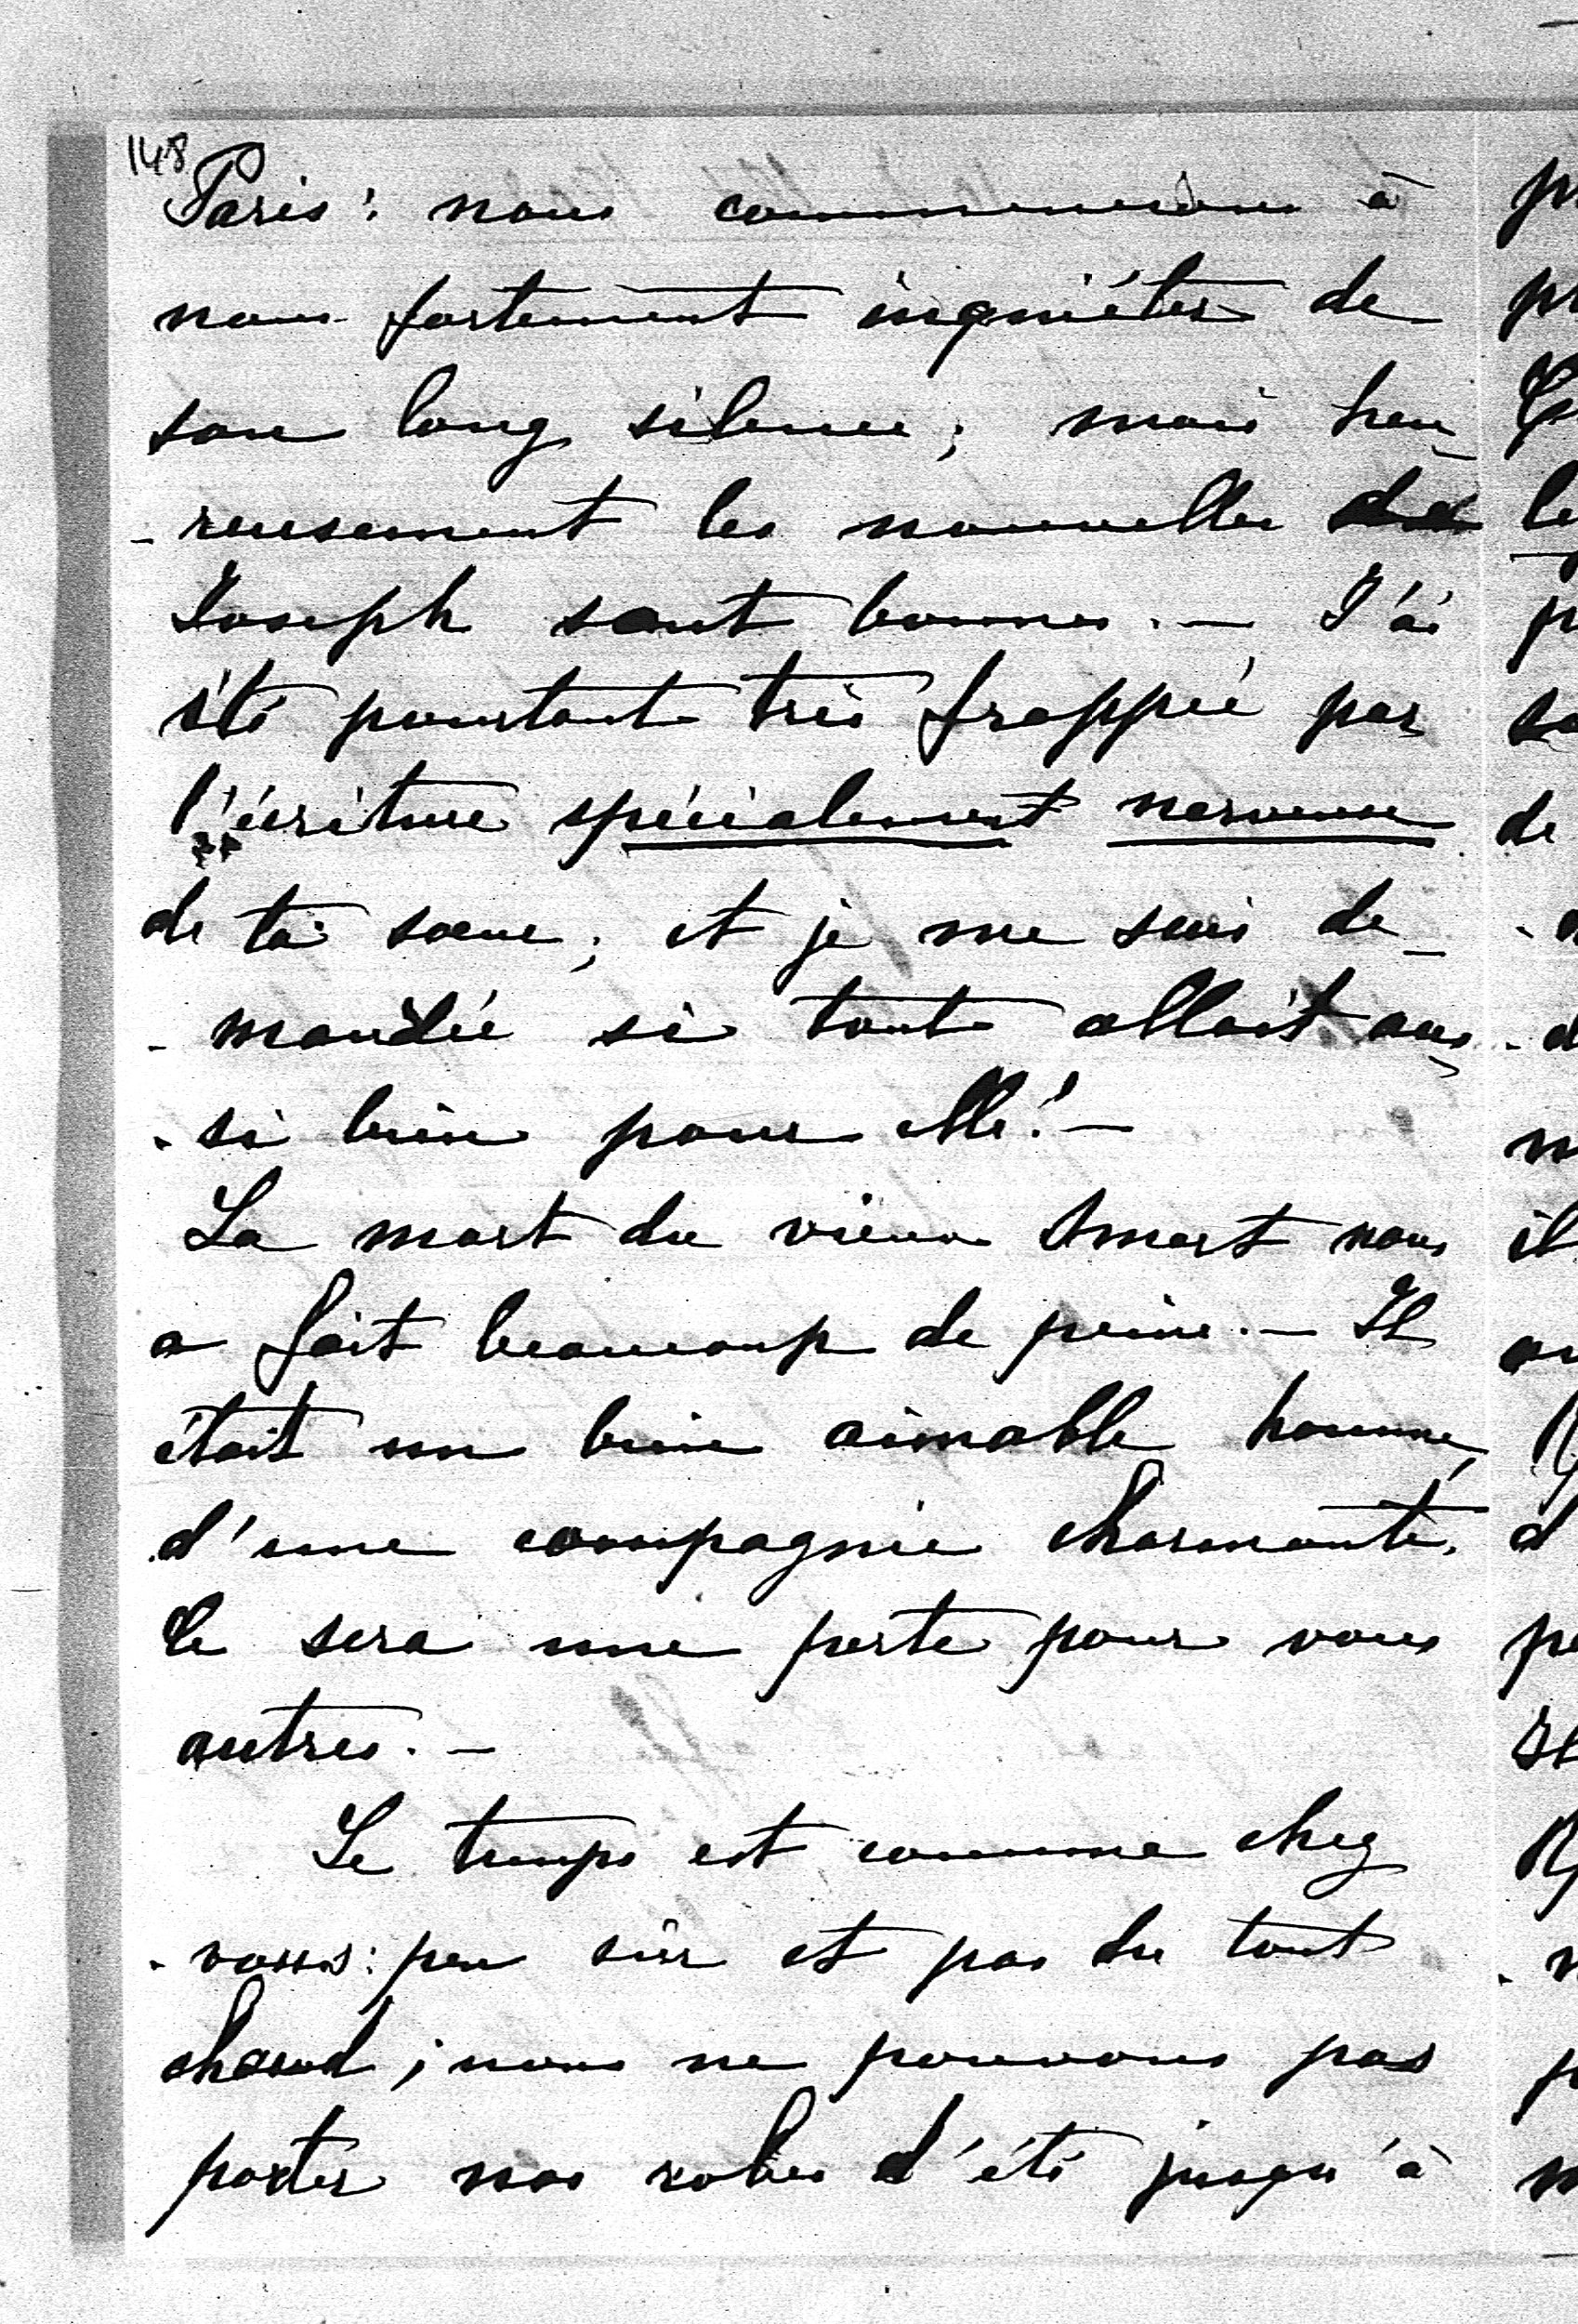 148
Paris: nous commencions à
nous fortement inquiéter de
son long silence; mais heu-
-reusement les nouvelles de
Joseph sont bonnes. — J'ai
été pourtant très frappée par
l'écriture spécialement nerveuse
de ta sœur; et je me suis de-
-mandée si tout allait aus-
-si bien pour elle! —
La mort du vieux Smart nous
a fait beaucoup de peine. — Il
était un bien aimable homme,
d'une compagnie charmante.
Ce sera une perte pour vous
autres. —
Le temps est comme chez
-vous: peu sûr et pas du tout
chaud; nous ne pouvons pas
porter nos robes d'été jusqu'à